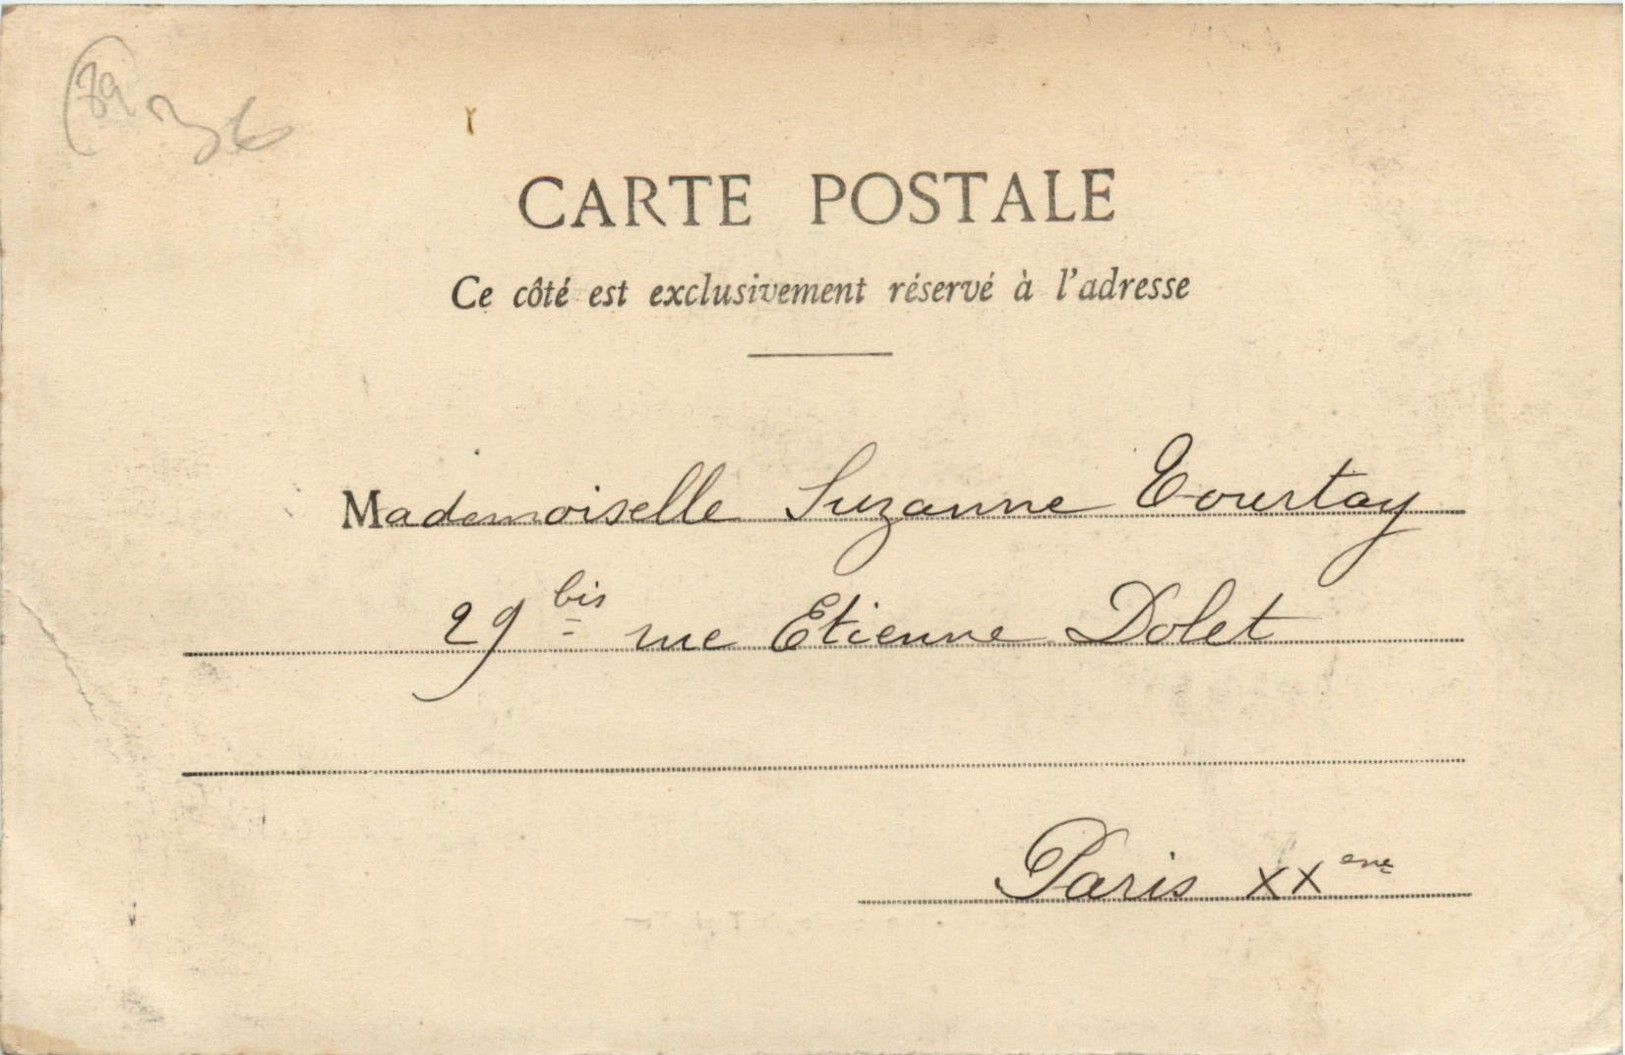 89
36
CARTE POSTALE
Ce côté est exclusivement réservé à l'adresse
Mademoiselle Suzanne Tourtay
29 bis rue Etienne Dolet
Paris XXeme